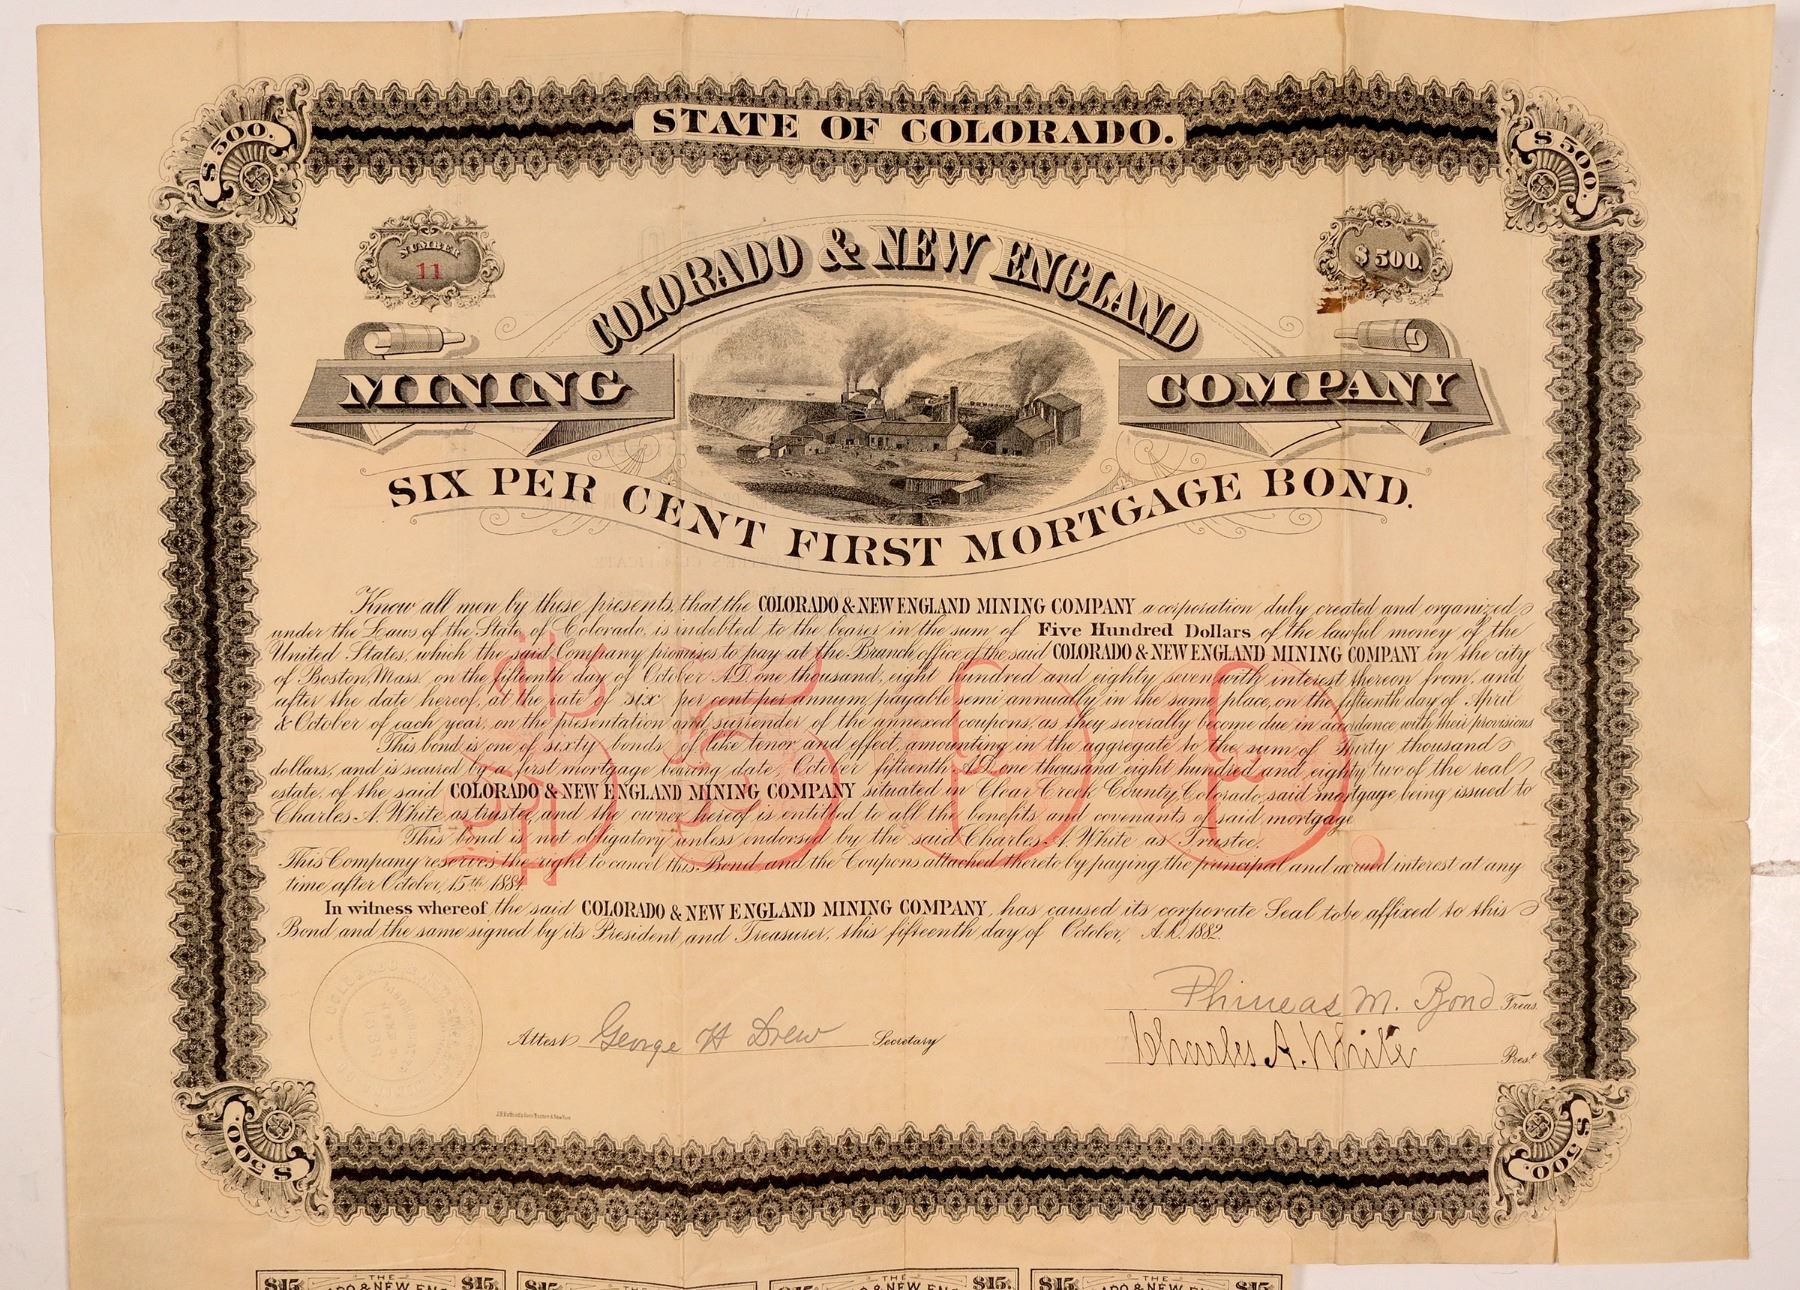 STATE OF COLORADO.
$500.
$500.
NUMBER
11
$500.
COLORADO & NEW ENGLAND
MINING
COMPANY
SIX PER CENT FIRST MORTGAGE BOND.
Know all men by these presents, that the COLORADO & NEW ENGLAND MINING COMPANY a corporation duly created and organized
under the Laws of the State of Colorado, is indebted to the bearer in the sum of Five Hundred Dollars of the lawful money of the
United States, which the said Company promises to pay at the Branch office of the said COLORADO & NEW ENGLAND MINING COMPANY in the city
of Boston, Mass. on the fifteenth day of October A.D. one thousand, eight hundred and eighty seven with interest thereon from, and
after the date hereof, at the rate of six per cent per annum, payable semi annually in the same place, on the fifteenth day of April
& October of each year, on the presentation and surrender of the annexed coupons, as they severally become due in accordance with their provisions
This bond is one of sixty bonds of like tenor and effect, amounting in the aggregate to the sum of Thirty thousand
dollars, and is secured by a first mortgage bearing date, October fifteenth, A.D. one thousand eight hundred and eighty two of the real
estate, of the said COLORADO & NEW ENGLAND MINING COMPANY situated in Clear Creek County, Colorado, said mortgage, being issued to
Charles A. White as trustee, and the owner hereof is entitled to all the benefits and covenants of said mortgage
This bond is not obligatory unless endorsed by the said Charles A. White as Trustee.
This Company reserves the right to cancel this Bond and the Coupons attached thereto by paying the principal and accrued interest at any
time after October, 15th, 1884.
$500.
In witness whereof, the said COLORADO & NEW ENGLAND MINING COMPANY, has caused its corporate Seal to be affixed to this
Bond and the same signed by its President, and Treasurer, this fifteenth day of October, A.D. 1882.
Phineas M. Bond Treas.
Attest George H Drew Secretary
Charles A. White Prest
$500.
$500.
$15. THE $15.
ADO & NEW EN
$15.
$15. THE $15.
ADO & NEW EN
$15. THE $15.
ADO & NEW EN